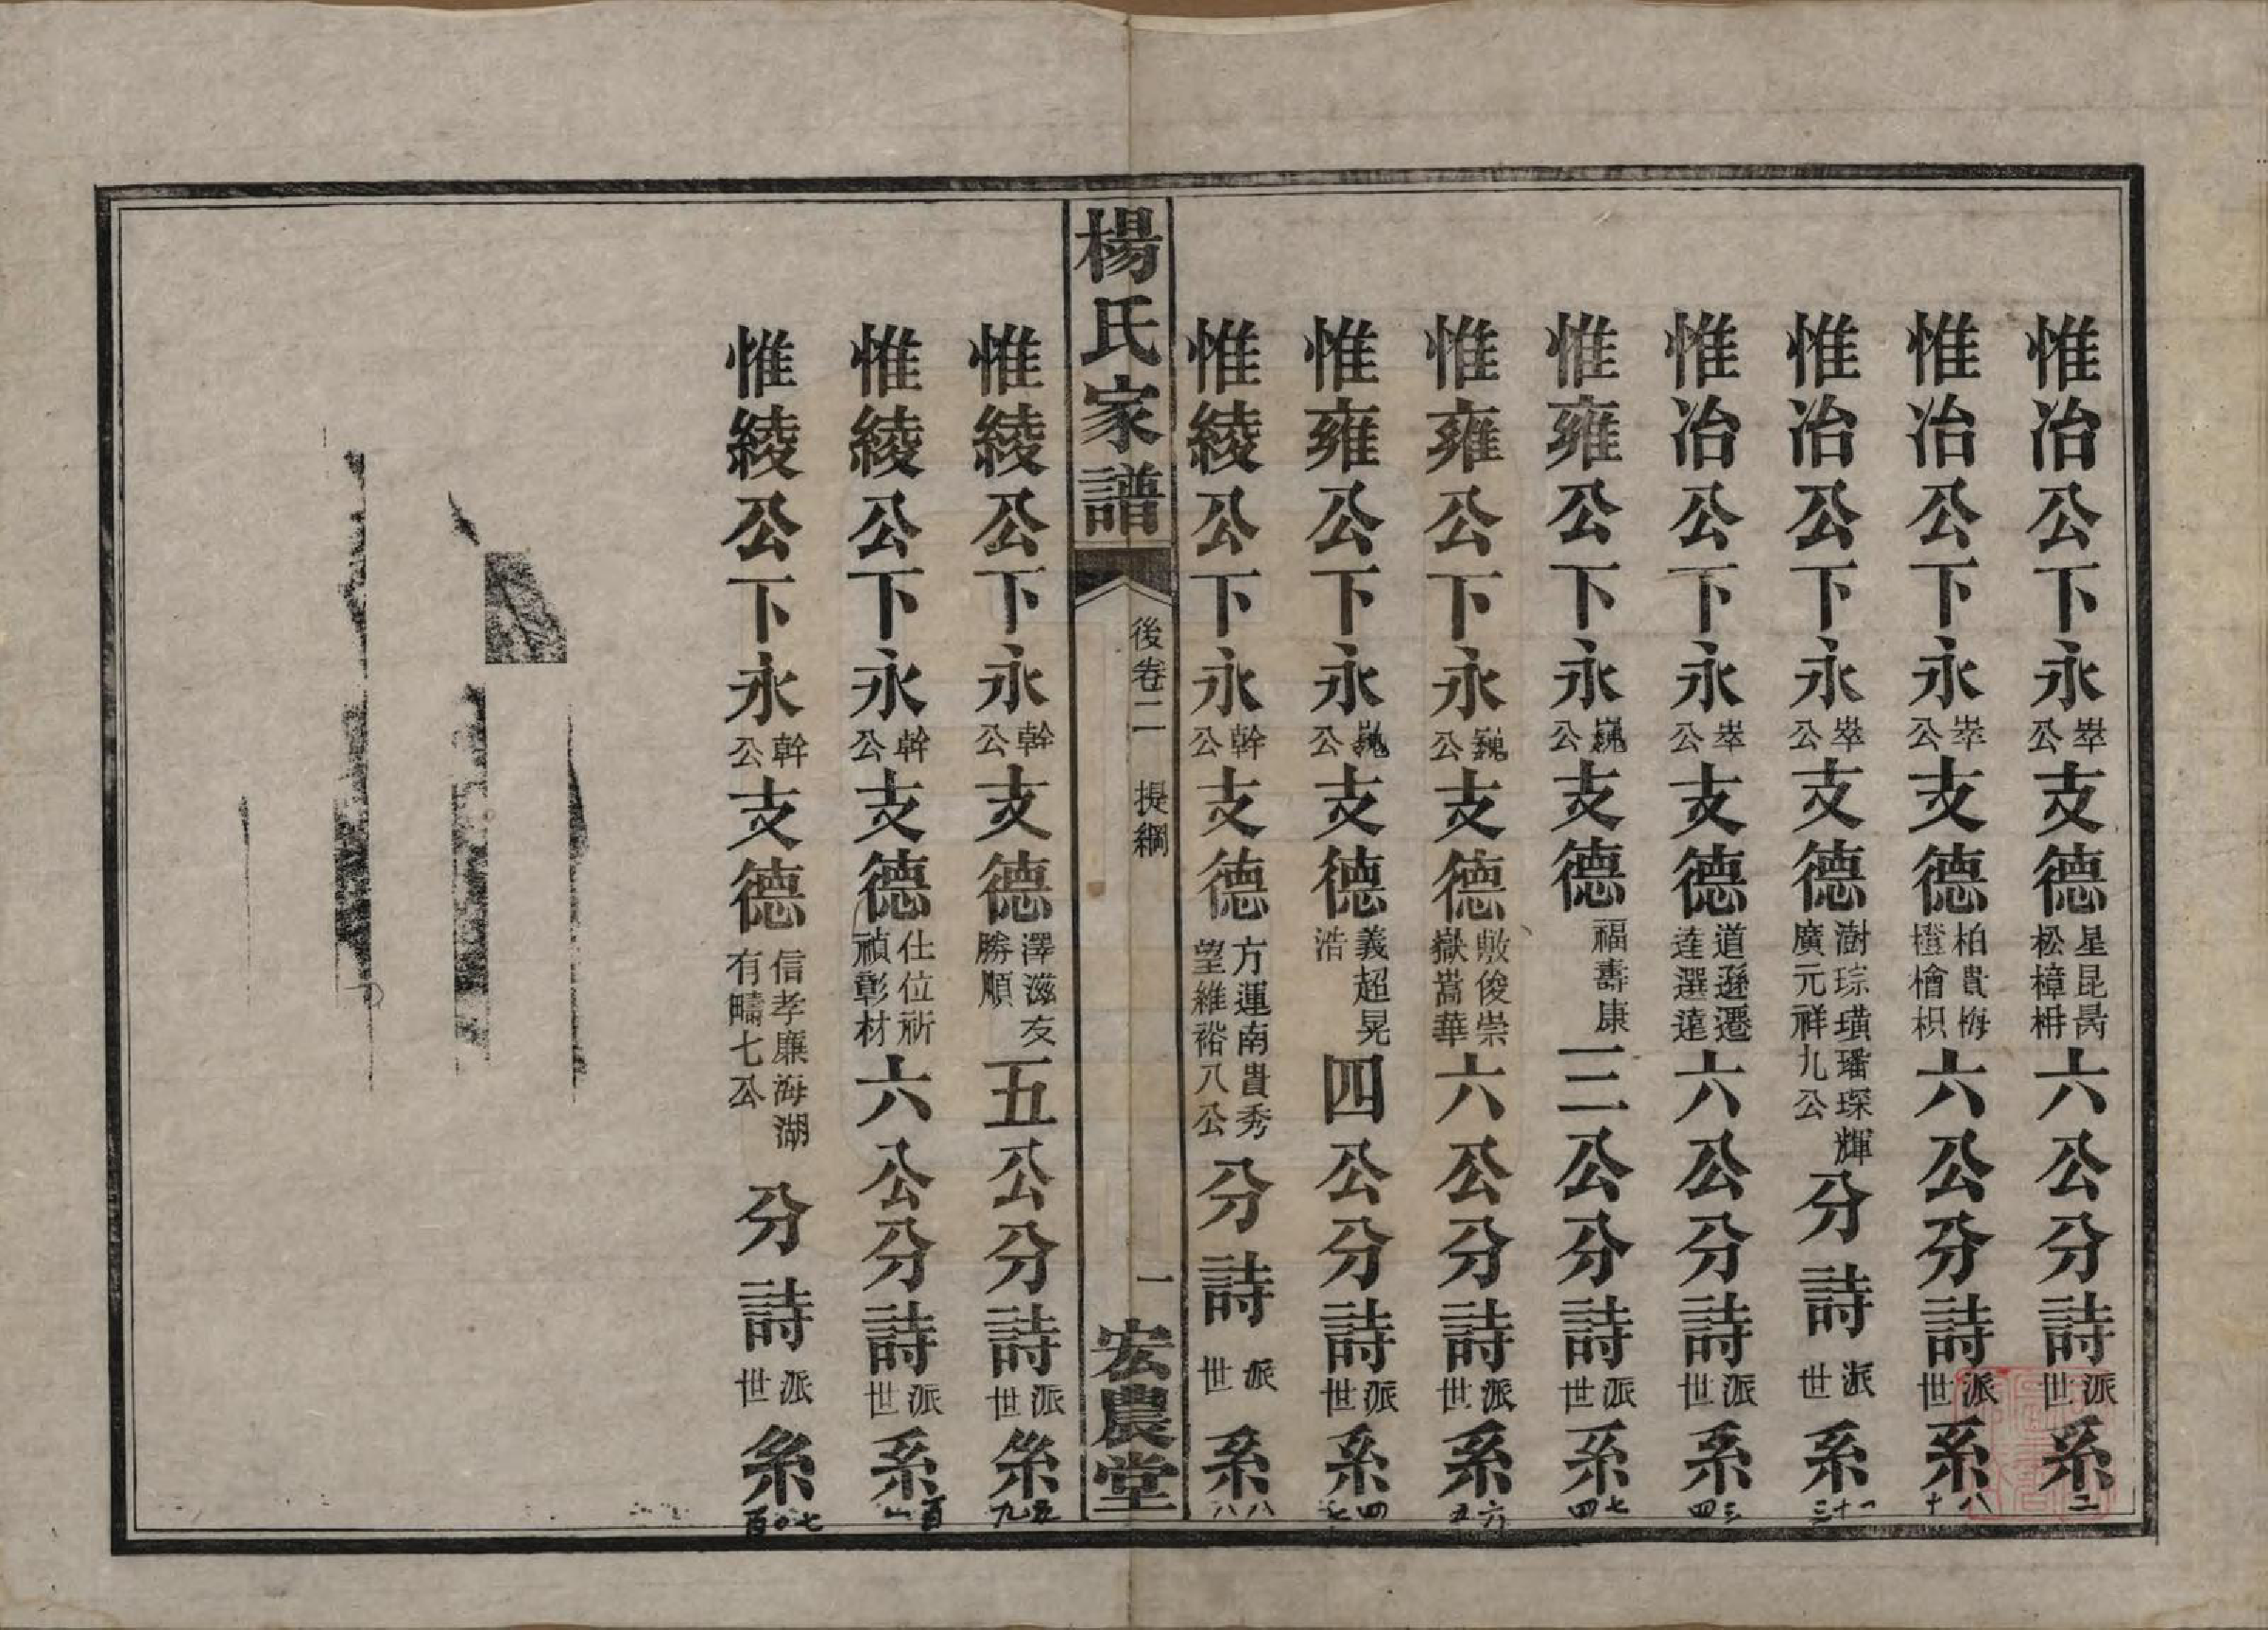 惟冶公下永崒公支德星昆昺松樟枏六公分詩派世系二
惟冶公下永崒公支德柏貴梅橙檜枳六公分詩派世系十八
惟冶公下永崒公支德澍琮璜璠琛輝廣元祥九公分詩派世系
惟冶公下永崒公支德道遜遷達選遠六公分詩派世系三四
惟雍公下永巍公支德福壽康三公分詩派世系
惟雍公下永巍公支德敭俊崇嶽嵩華六公分詩派世系
惟雍公下永公支德義超晃浩四公分詩派世系
惟綾公下永幹公支德方運南貴秀望維裕八公分詩派世系八八
楊氏家譜
後卷二 提綱
一
宏農堂
惟綾公下永幹公支德澤滋友勝順五公分詩派世系
惟綾公下永幹公支德仕位祈禎彰材六公分詩派世系
惟綾公下永幹公支德信孝廉海湖有疇七公分詩派世系